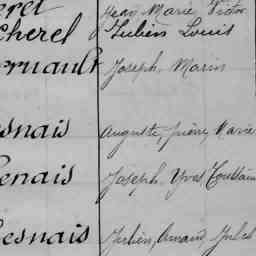 Jean Marie Victor
cherel Julien Louis
ruault Joseph Marin
snais Auguste, Pierre, Marie
enais Joseph Yves Toussain
esnais Julien, Amand, Jules